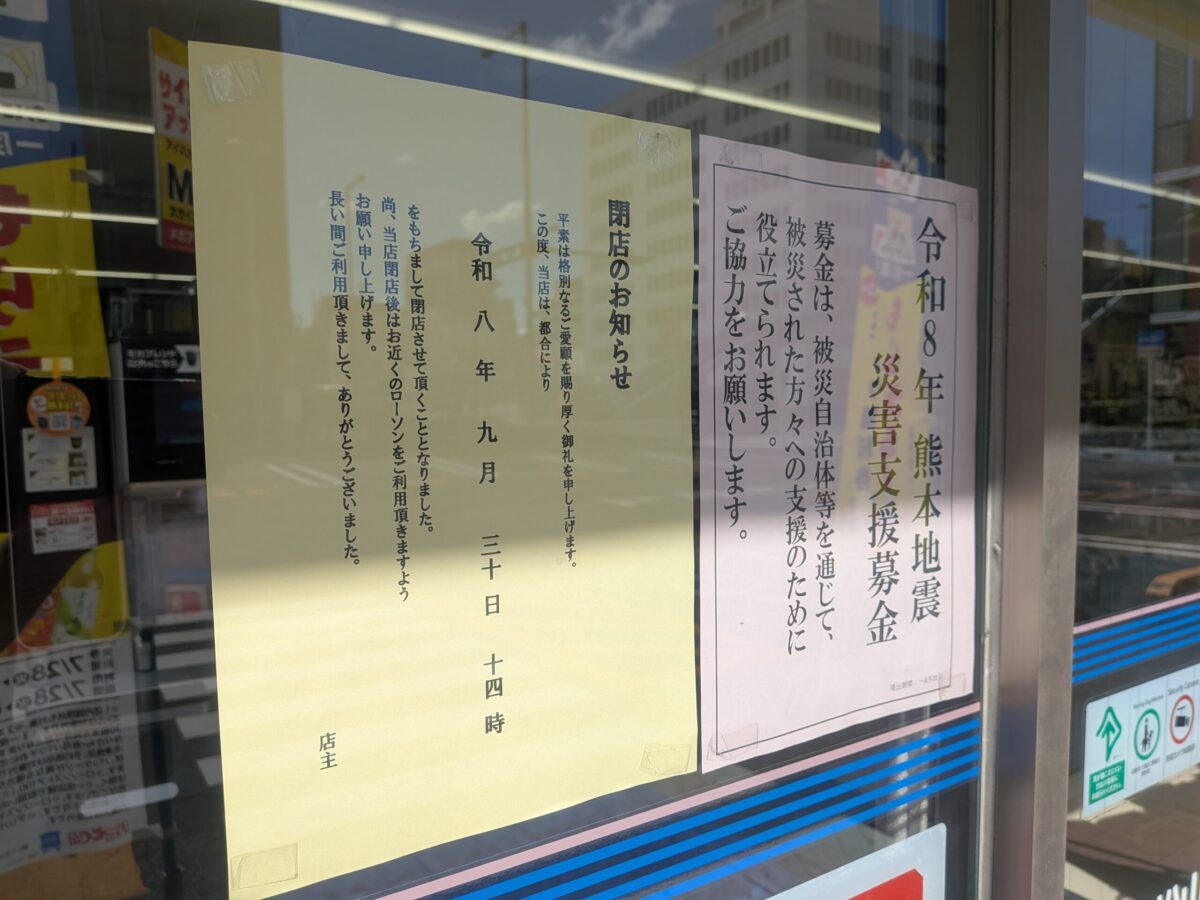 令和8年 熊本地震
災害支援募金
募金は、被災自治体等を通じて、
被災された方々への支援のために
役立てられます。
ご協力をお願いします。
閉店のお知らせ
平素は格別なるご愛顧を賜り厚く御礼を申し上げます。
この度、当店は、都合により
令和 八 年 九 月 三十 日 十四 時
をもちまして閉店させて頂くこととなりました。
尚、当店閉店後はお近くのローソンをご利用頂きますよう
お願い申し上げます。
長い間ご利用頂きまして、ありがとうございました。
店主
7/28
7/28
Security Camera